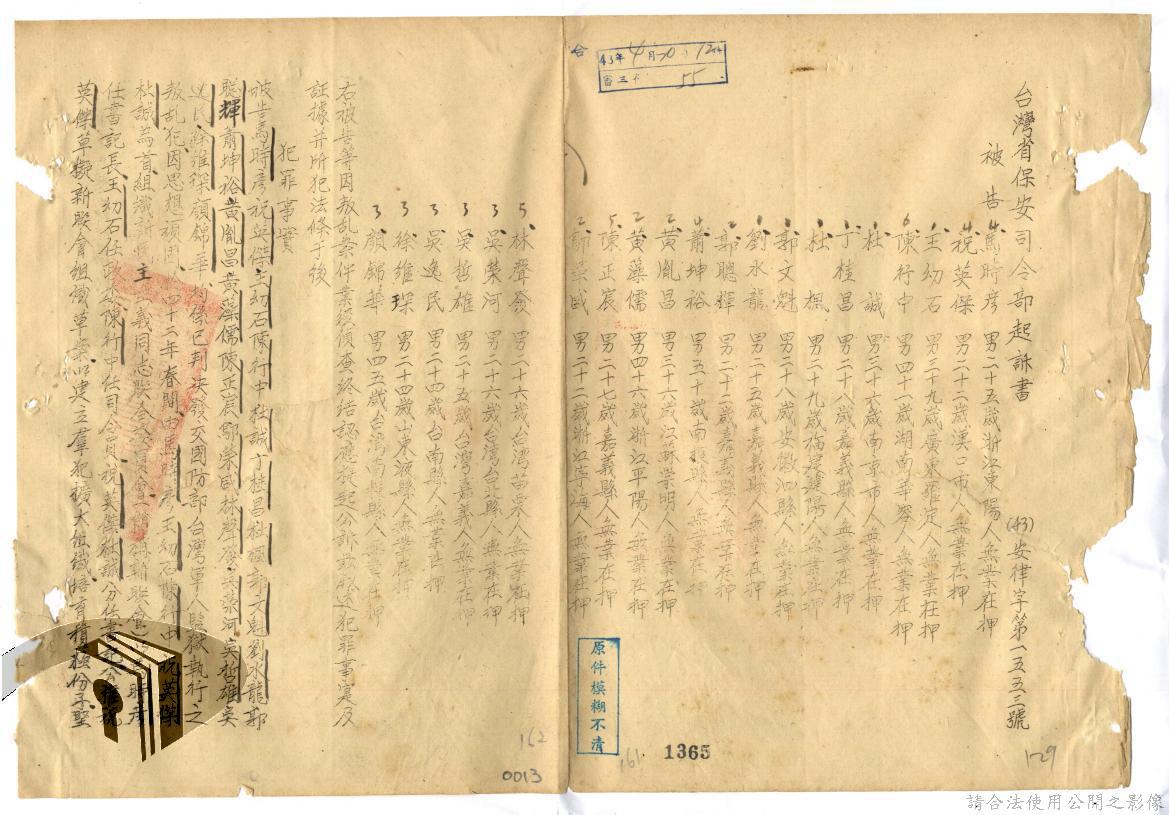 台灣省保安司令部起訴書
(43)安律字第一五五三號
被告 馬時彥 男二十五歲浙江東陽人無業在押
祝英傑 男二十二歲漢口市人無業在押
王幼石 男三十九歲廣東羅定人無業在押
陳行中 男四十一歲湖南華容人無業在押
杜誠 男三十六歲南京市人無業在押
丁桂昌 男二十八歲嘉義縣人無業在押
杜楓 男二十九歲福建 人無業在押
郭文魁 男二十八歲安徽泗縣人無業在押
劉水龍 男二十五歲嘉義縣人無業在押
郭聰輝 男二十二歲嘉義縣人無業在押
蕭坤裕 男五十歲南投縣人無業在押
黃胤昌 男三十六歲江蘇崇明人無業在押
黃藥儒 男四十六歲浙江平陽人無業在押
陳正宸 男二十七歲嘉義縣人無業在押
鄔榮盛 男二十二歲浙江寧海人無業在押
林聲發 男二十六歲台灣苗栗人無業在押
吳榮河 男二十六歲台灣台北縣人無業在押
吳哲雄 男二十五歲台灣嘉義人無業在押
吳逸民 男二十四歲台南縣人無業在押
徐維琛 男二十四歲山東 縣人無業在押
顏錦華 男四十五歲台灣 縣人無業在押
右被告等因叛乱案件業經偵查終結認應提起公訴茲敘述犯罪事實及
証據并所犯法條于後
犯罪事實
被告馬時彥祝英傑王幼石陳行中杜誠丁桂昌杜楓郭文魁劉水龍郭
聰輝蕭坤裕黃胤昌黃藥儒陳正宸鄔榮盛林聲發吳榮河吳哲雄吳
逸民徐維琛顏錦華 係已判決發交國防部台灣軍人監獄執行之
叛乱犯因思想頑固 四十二年春間由馬時彥王幼石陳行中祝英傑
杜誠為首組織新 主義同志聯合委員會 新聯會 時彥
任書記長王幼石任政 陳行中任司令員祝英傑杜誠分任書記 祝
英傑草擬新聯會組織草案以建立 擴大組織培育積極份子堅
合
43年4月20 12
55
原件模糊不清
1365
161
162
0013
129
請合法使用公開之影像